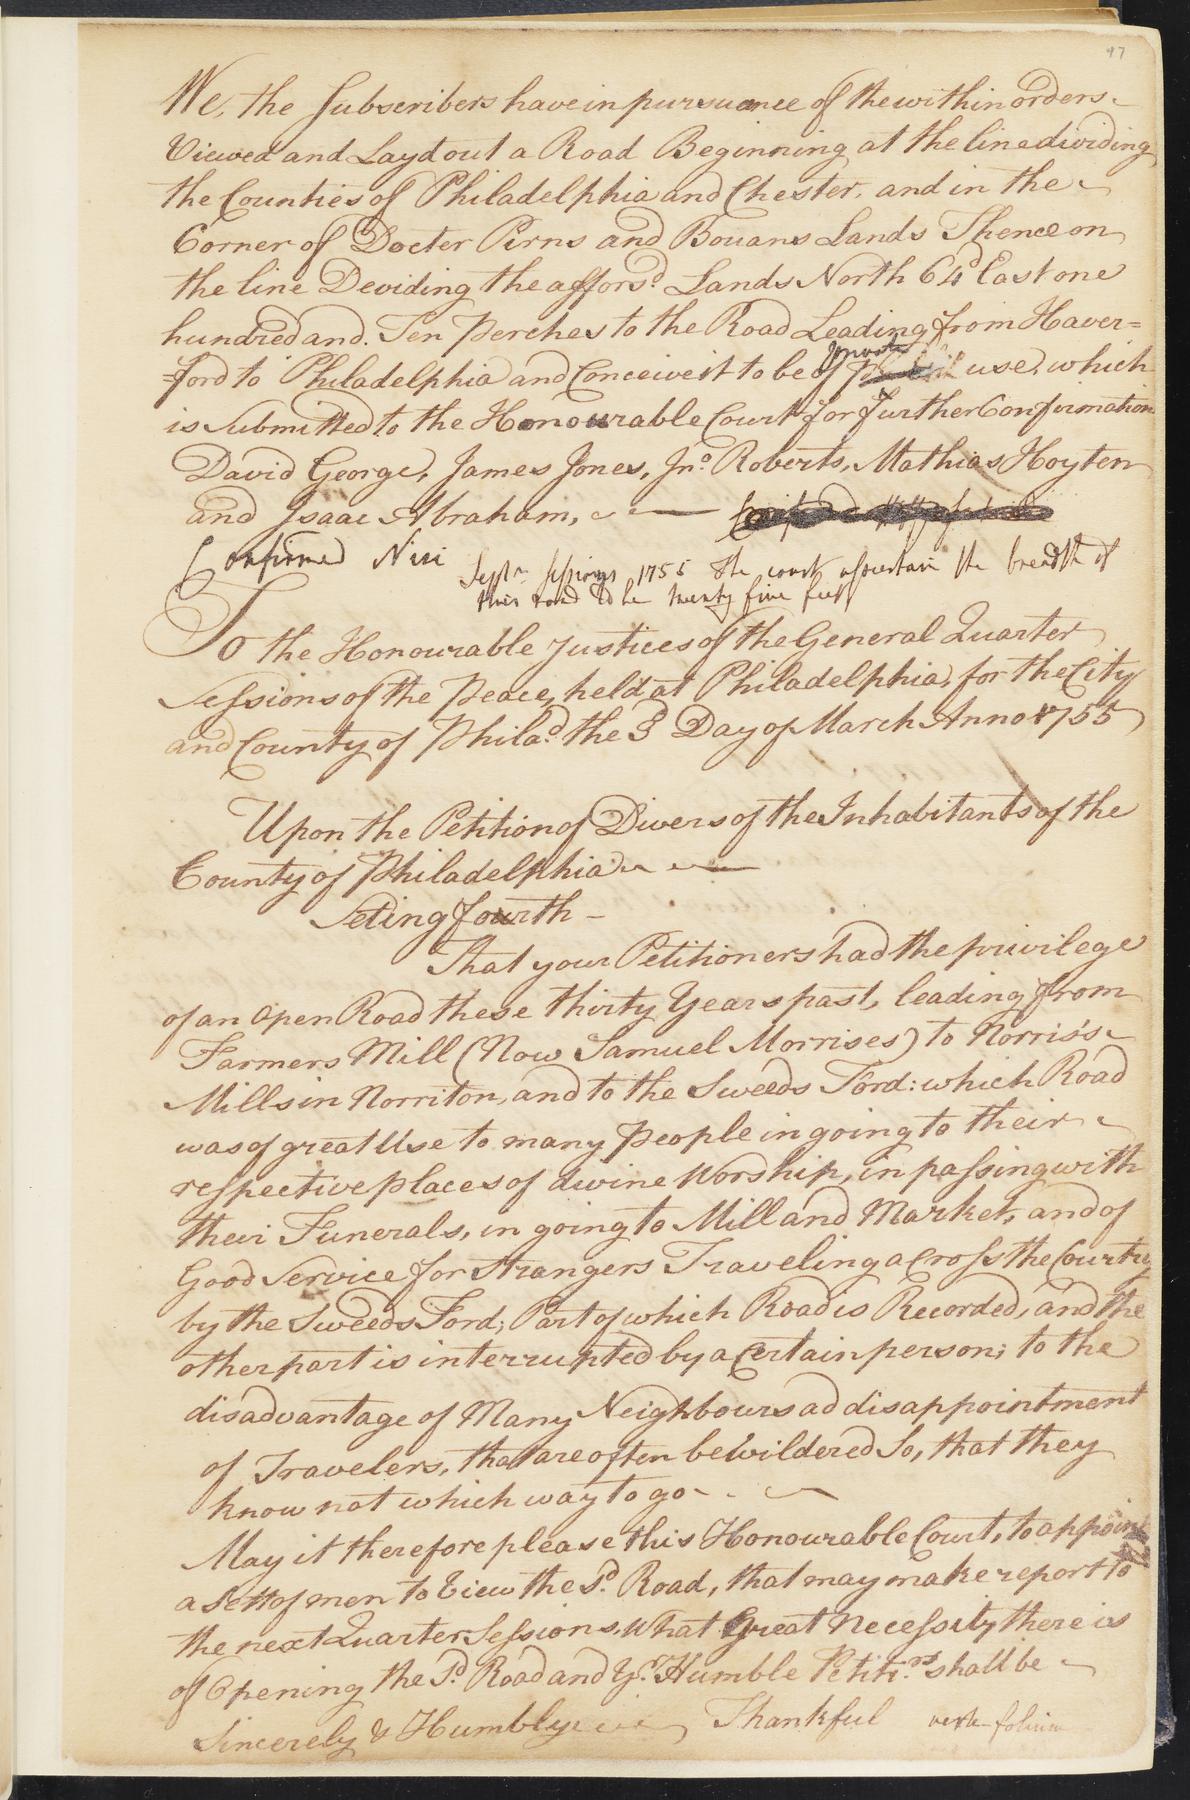 97
We, the Subscribers have in pursuance of the within orders
Viewed and Layd out a Road Beginning at the line dividing
the Counties of Philadelphia and Chester, and in the
Corner of Docter Perns and Bouans Lands Thence on
the line Deviding the affors.d Lands North 64d East one
hundred and Ten perches to the Road Leading from Haver=
=ford to Philadelphia and Conceive it to be of private use, which
is Submitted to the Honourable Court for further Confirmation
David George, James Jones, Jno. Roberts, Mathias Hoyten
and Isaac Abraham,
Confirmed Nisi
Septr. Sessions 1755 the court ascertain the breadth of
this road to be twenty five feet
To the Honourable Justices of the General Quarter
Sessions of the Peace, held at Philadelphia, for the City
and County of Philad.a the 3 Day of March Anno 1755
Upon the Petition of Divers of the Inhabitants of the
County of Philadelphia
Seting fourth -
That your Petitioners had the privilege
of an Open Road these thirty Years past, leading from
Farmers Mill (Now Samuel Morrises) to Norris's
Mills in Norriton, and to the Sweeds Ford: which Road
was of great Use to many People in going to their
respective places of divine Worship, in passing with
their Funerals, in going to Mill and Market, and of
Good Service for Strangers Traveling across the Courtry
by the Sweeds Ford; Part of which Road is Recorded, and the
other part is interrupted by a Certain person; to the
disadvantage of Many Neighbours ad disappointment
of Travelers, that are often bewildered So, that they
know not which way to go
May it therefore please this Honourable Court, to appoint
a Sett of men to View the Sd. Road, that may make report to
the next Quarter Sessions, What Great Necessity there is
of Opening the Sd. Road and Yr. Humble Petitirs. shall be
Sincerely & Humblye Thankful